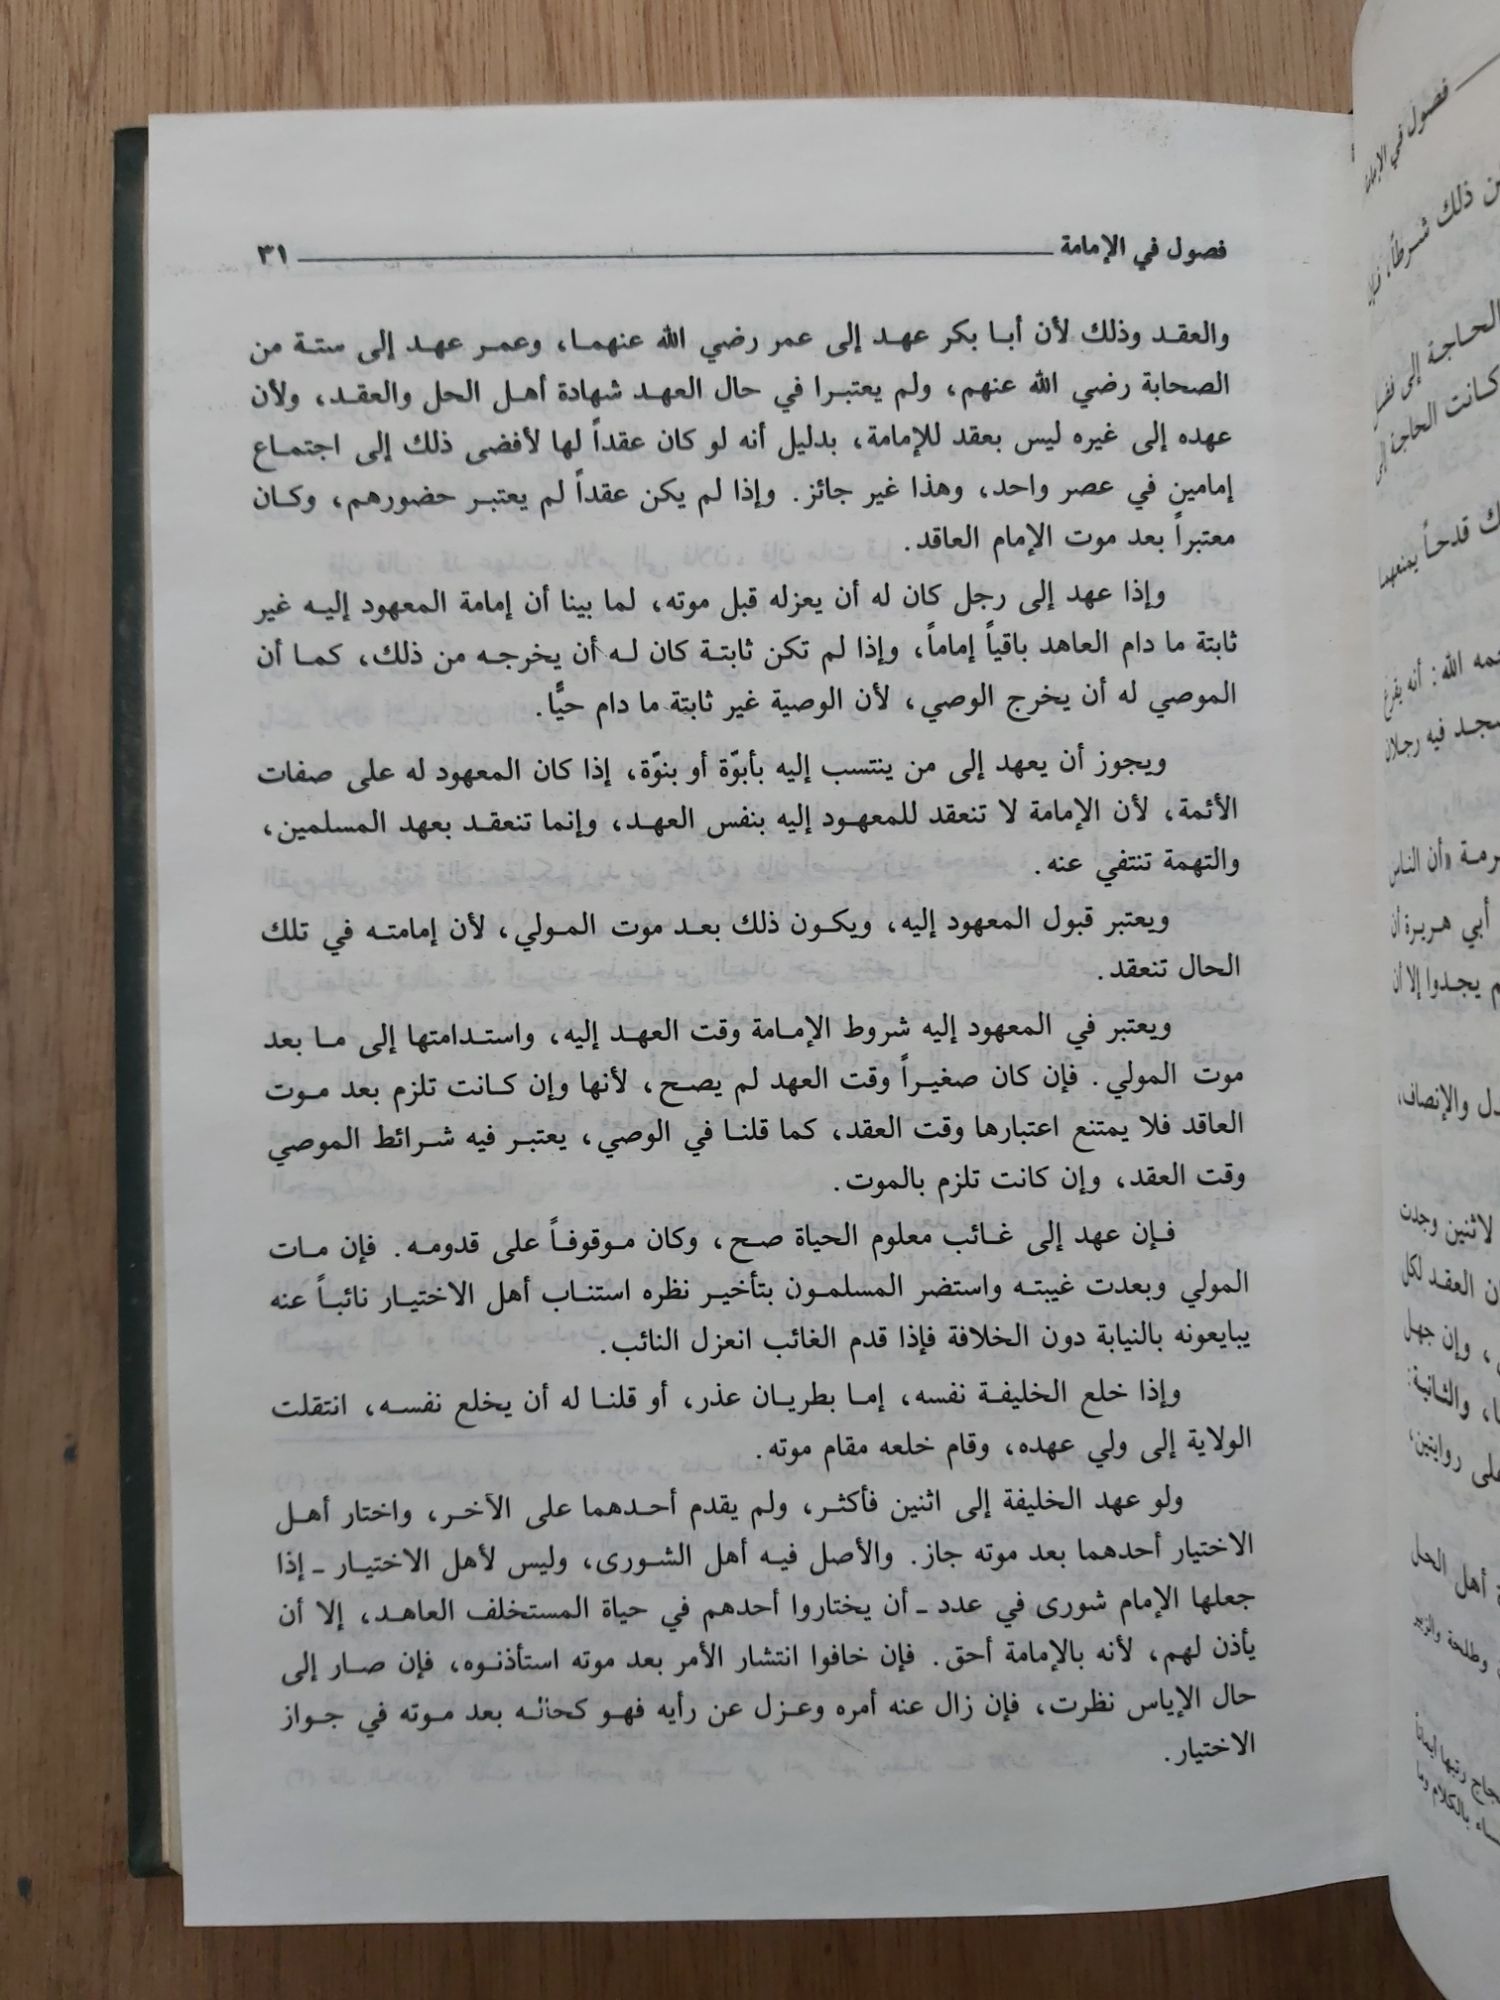 فصول في الإمامة ٣١
والعقـد وذلك لأن أبـا بكر عهـد إلى عمر رضي الله عنهمـا، وعمـر عهـد إلى ستـة من
الصحابة رضي الله عنهم، ولم يعتبـرا في حال العهـد شهادة أهـل الحل والعقـد، ولأن
عهده إلى غيره ليس بعقد للإمامة، بدليل أنه لو كان عقداً لها لأفضى ذلك إلى اجتمـاع
إمامين في عصر واحد، وهذا غير جائز. وإذا لم يكن عقداً لم يعتبـر حضورهم، وكـان
معتبراً بعد موت الإمام العاقد.
وإذا عهد إلى رجل كان له أن يعزله قبل موته، لما بينا أن إمامة المعهود إليـه غير
ثابتة ما دام العاهد باقياً إماماً، وإذا لم تكن ثابتـة كان لـه أن يخرجـه من ذلك، كمـا أن
الموصي له أن يخرج الوصي، لأن الوصية غير ثابتة ما دام حيًّا.
ويجوز أن يعهد إلى من ينتسب إليه بأبوّة أو بنوّة، إذا كان المعهود له على صفات
الأئمة، لأن الإمامة لا تنعقد للمعهـود إليه بنفس العهـد، وإنما تنعقـد بعهد المسلمين،
والتهمة تنتفي عنه.
ويعتبر قبول المعهود إليه، ويكـون ذلك بعـد موت المـولي، لأن إمامتـه في تلك
الحال تنعقد.
ويعتبر في المعهود إليه شروط الإمـامة وقت العهـد إليه، واستـدامتها إلى مـا بعد
موت المولي. فإن كان صغيـراً وقت العهد لم يصـح، لأنها وإن كـانت تلزم بعد مـوت
العاقد فلا يمتنع اعتبارها وقت العقد، كما قلنـا في الوصي، يعتبـر فيه شـرائط الموصي
وقت العقد، وإن كانت تلزم بالموت.
فـإن عهد إلى غـائب معلوم الحياة صح، وكان مـوقوفـاً على قدومـه. فإن مـات
المولي وبعدت غيبتـه واستضر المسلمـون بتأخيـر نظره استناب أهل الاختيـار نائبـاً عنه
يبايعونه بالنيابة دون الخلافة فإذا قدم الغائب انعزل النائب.
وإذا خلع الخليفـة نفسه، إمـا بطريـان عذر، أو قلنـا له أن يخلع نفسـه، انتقلت
الولاية إلى ولي عهده، وقام خلعه مقام موته.
ولو عهد الخليفة إلى اثنين فأكثـر، ولم يقدم أحـدهما على الآخـر، واختار أهـل
الاختيار أحدهما بعد موته جاز. والأصل فيـه أهل الشـورى، وليس لأهل الاختيـار ـ إذا
جعلها الإمام شورى في عدد ـ أن يختاروا أحدهم في حياة المستخلف العاهـد، إلا أن
يأذن لهم، لأنه بالإمامة أحق. فإن خافوا انتشار الأمر بعد موته استأذنـوه، فإن صـار إلى
حال الإياس نظرت، فإن زال عنه أمره وعـزل عن رأيه فهـو كحالـه بعد مـوته في جـواز
الاختيار.
فصول في الإمامة
ن ذلك شـرطاً،
الحـاجـة إلى
كـانت الحاجة إلى
ك قدحـاً يمنعهـا
الله: أنه يقرع
فيه رجلان
أن الناس
أبي هريرة أن
م يجـدوا إلا أن
والإنصاف،
لاثنين وجدت
العقـد لكل
، وإن جهل
والثانية:
على روايتين،
أهل الحل
وطلحة والزبير